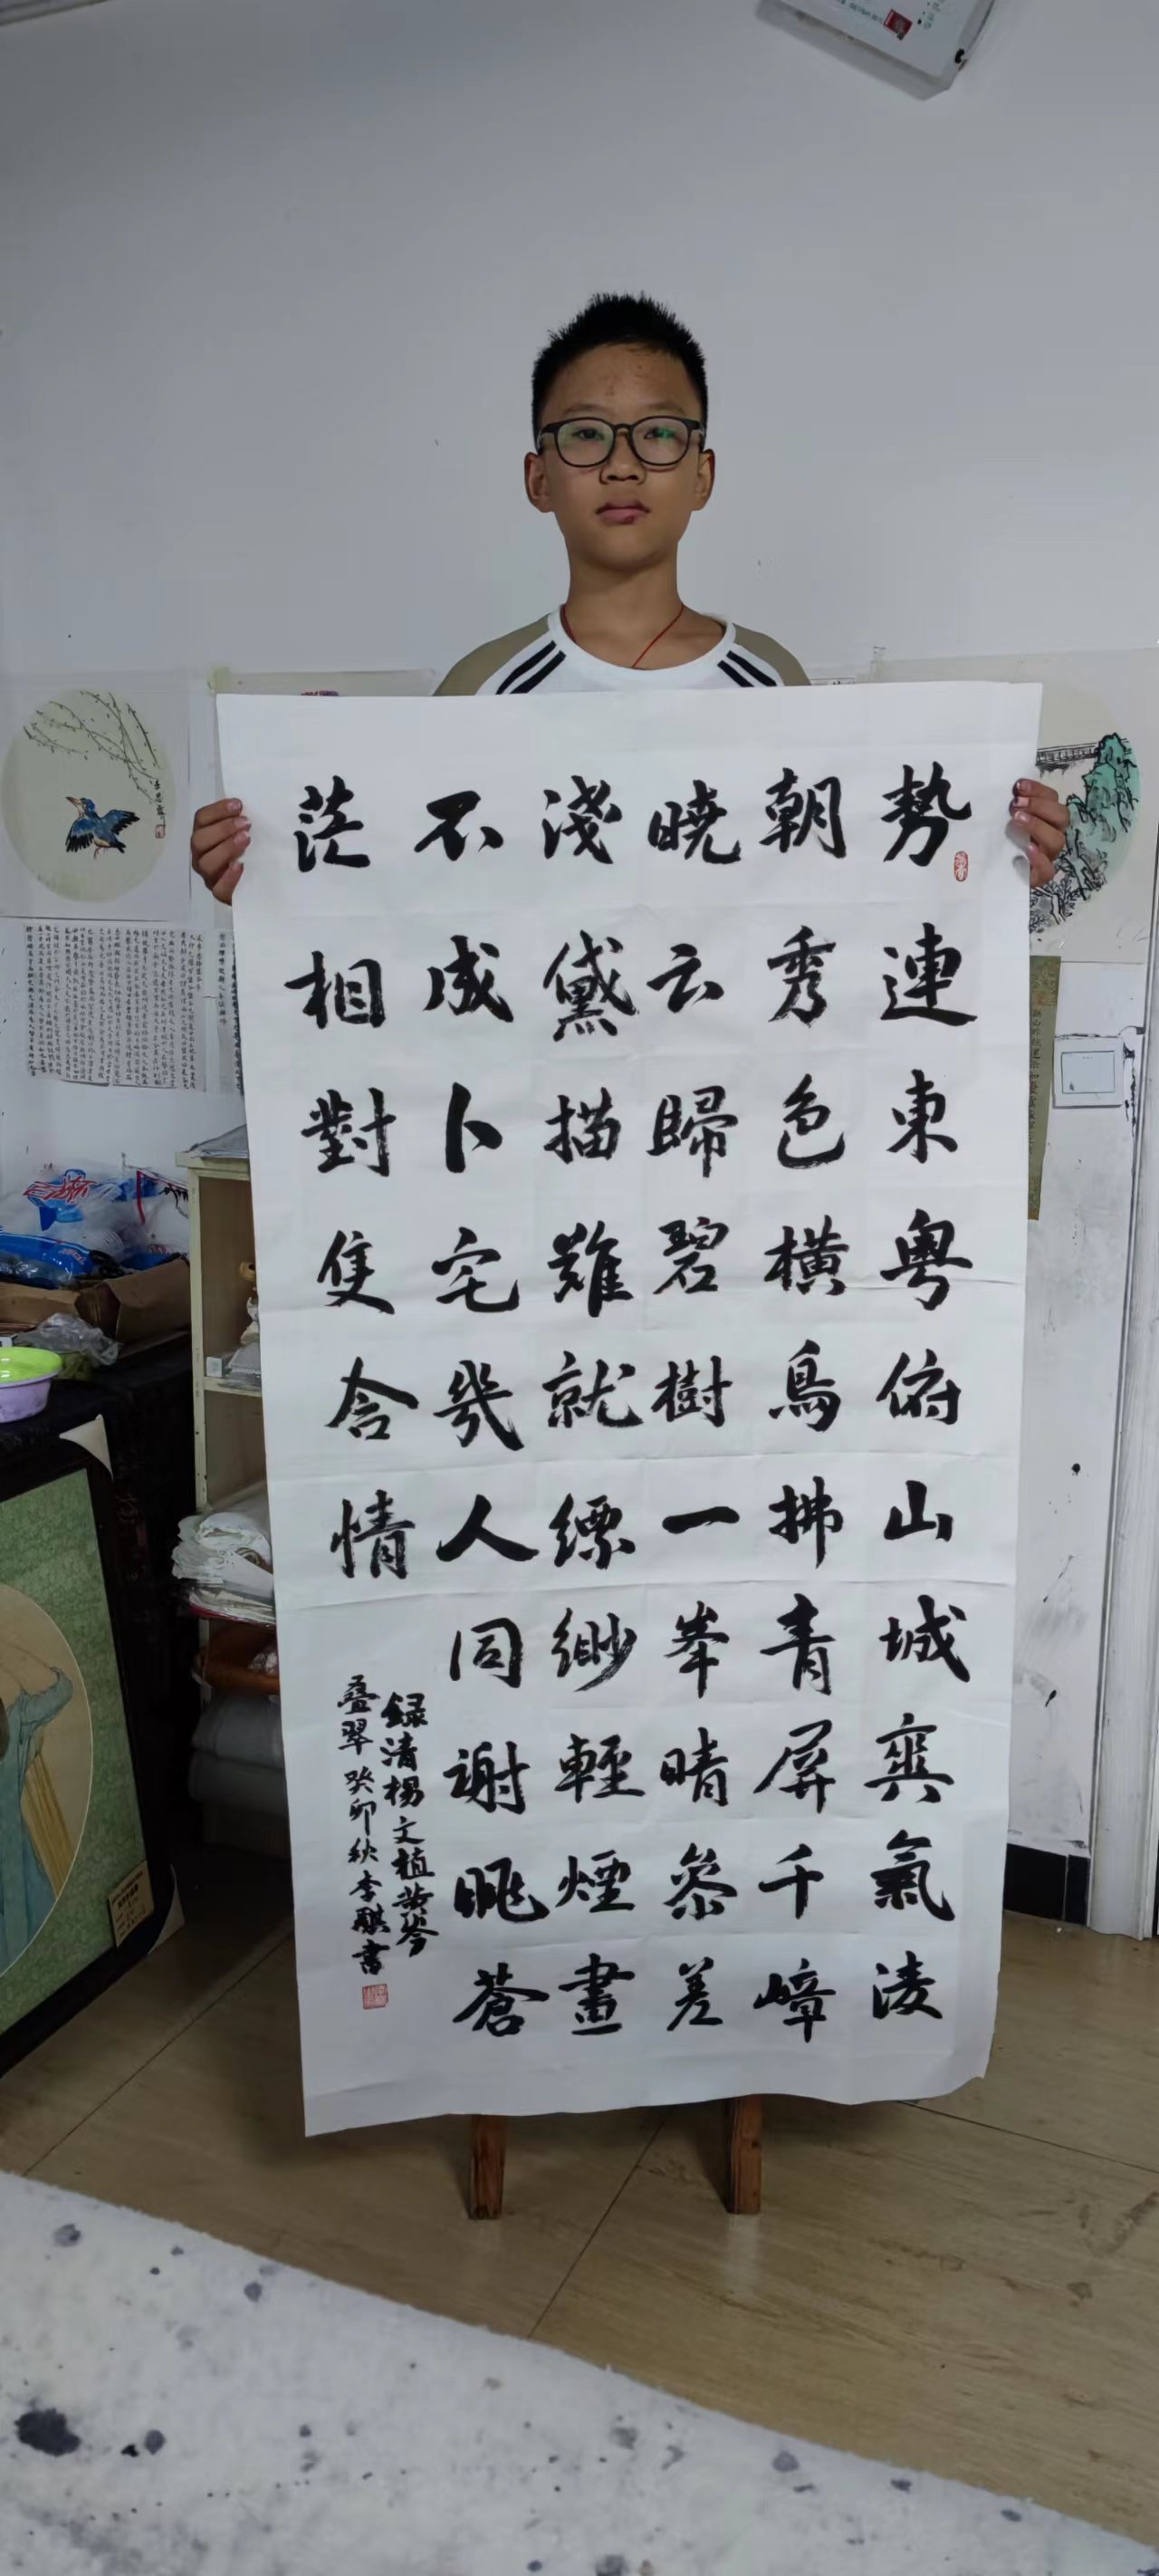 勢連東粤俯山城爽氣淩
朝秀色橫鳥拂青屏千嶂
曉云歸碧樹一峯晴叅差
淺黛描難就縹緲輕煙畫
不成卜宅幾人同謝眺蒼
茫相對隻含情
錄清楊文植黄岑
叠翠癸卯秋李騏書